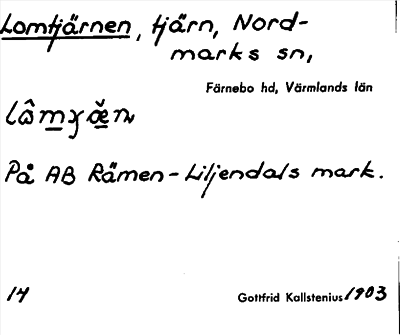 Lomtjärnen, tjärn, Nord-
marks sn,
Färnebo hd, Värmlands län
På AB Rämen-Liljendals mark.
14 Gottfrid Kallstenius 1903